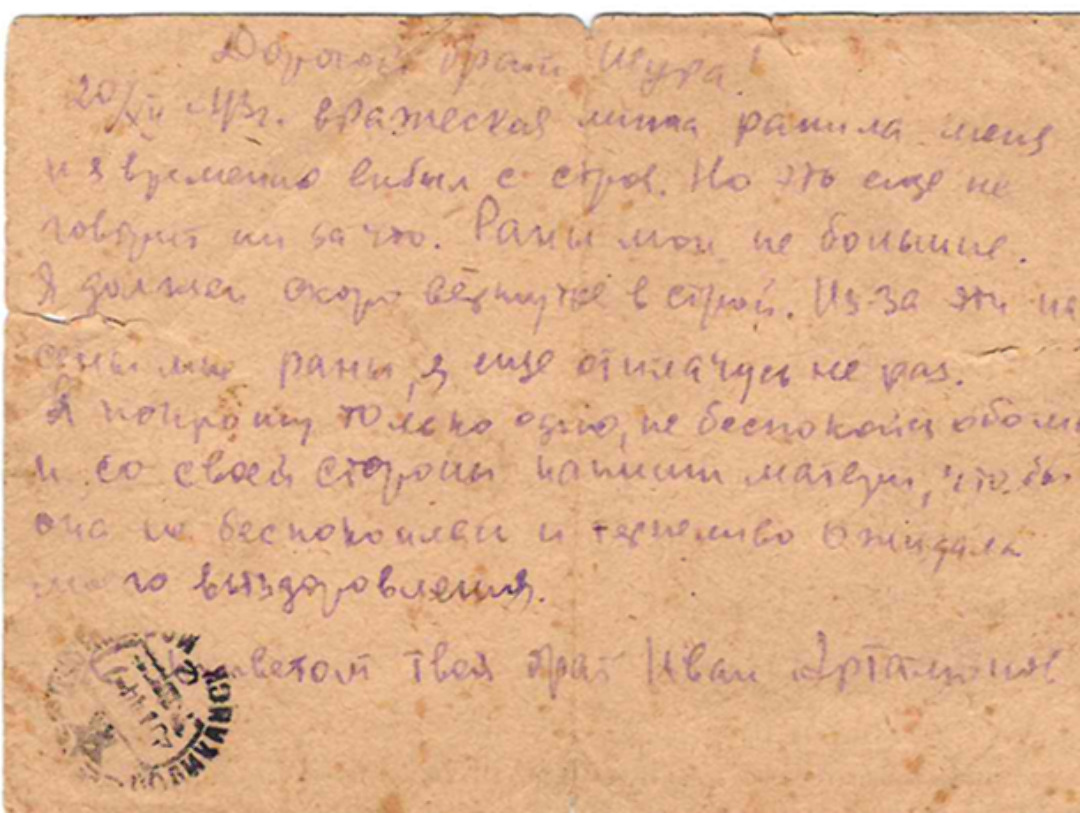 Дорогой брат Шура!
20/XII 43г. вражеская мина ранила меня
и я временно выбыл с строя. Но это еще не
говорит ни за что. Раны мои не большие.
Я должен скоро вернутся в строй. Из-за эти на
сеные мне раны, я еще отплачусь не раз.
Я попрошу только одно, не беспокойся обо мне
и со своей стороны напиши матери, что бы
она не беспокоилась и терпеливо ожидала
моего выздоровления.
приветом твой брат Иван Артамонов